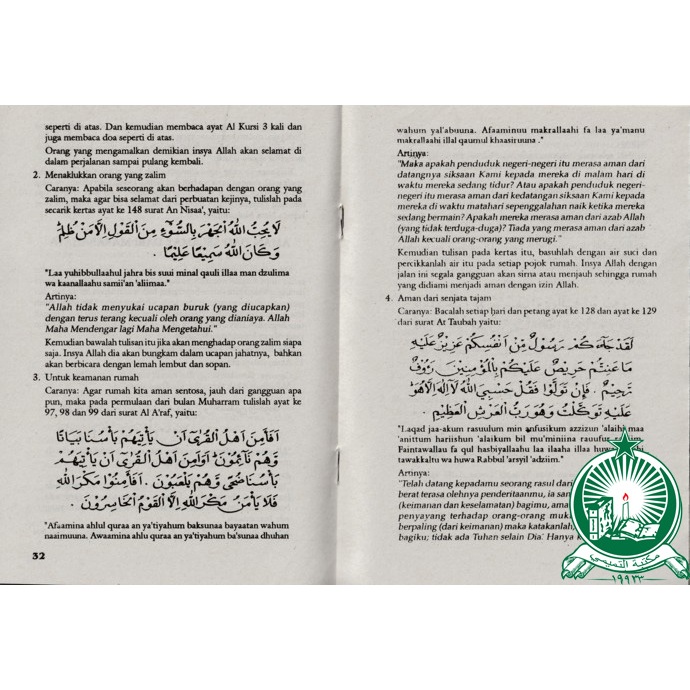 seperti di atas. Dan kemudian membaca ayat Al Kursi 3 kali dan
juga membaca doa seperti di atas.
Orang yang mengamalkan demikian insya Allah akan selamat di
dalam perjalanan sampai pulang kembali.
2. Menaklukkan orang yang zalim
Caranya: Apabila seseorang akan berhadapan dengan orang yang
zalim, maka agar bisa selamat dari perbuatan kejinya, tulislah pada
secarik kertas ayat ke 148 surat An Nisaa', yaitu:
لَا يُحِبُّ اللهُ الْجَهْرَ بِالسُّوْءِ مِنَ الْقَوْلِ اِلَّا مَنْ ظُلِمَ
وَكَانَ اللهُ سَمِيْعًا عَلِيْمًا .
"Laa yuhibbullaahul jahra bis suui minal qauli illaa man dzulima
wa kaanallaahu samii'an 'aliimaa."
Artinya:
"Allah tidak menyukai ucapan buruk (yang diucapkan)
dengan terus terang kecuali oleh orang yang dianiaya. Allah
Maha Mendengar lagi Maha Mengetahui."
Kemudian bawalah tulisan itu jika akan menghadap orang zalim siapa
saja. Insya Allah dia akan bungkam dalam ucapan jahatnya, bahkan
akan berbicara dengan lemah lembut dan sopan.
3. Untuk keamanan rumah
Caranya: Agar rumah kita aman sentosa, jauh dari gangguan apa
pun, maka pada permulaan dari bulan Muharram tulislah ayat ke
97, 98 dan 99 dari surat Al A'raf, yaitu:
اَفَاَمِنَ اَهْلُ الْقُرٰى اَنْ يَأْتِيَهُمْ بَأْسُنَا بَيَاتًا
وَهُمْ نَآئِمُوْنَ اَوَاَمِنَ اَهْلُ الْقُرٰى اَنْ يَأْتِيَهُمْ
بَأْسُنَا ضُحًى وَهُمْ يَلْعَبُوْنَ . اَفَاَمِنُوْا مَكْرَ اللهِ
فَلَا يَأْمَنُ مَكْرَ اللهِ اِلَّا الْقَوْمُ الْخَاسِرُوْنَ .
"Afaamina ahlul quraa an ya'tiyahum baksunaa bayaatan wahum
naaimuuna. Awaamina ahlu quraa an ya'tiyahum ba'sunaa dhuhan
32
wahum yal'abuuna. Afaaminuu makrallaahi fa laa ya'manu
makrallaahi illal qaumul khaasiruuna ."
Artinya:
"Maka apakah penduduk negeri-negeri itu merasa aman dari
datangnya siksaan Kami kepada mereka di malam hari di
waktu mereka sedang tidur? Atau apakah penduduk negeri-
negeri itu merasa aman dari kedatangan siksaan Kami kepada
mereka di waktu matahari sepenggalahan naik ketika mereka
sedang bermain? Apakah mereka merasa aman dari azab Allah
(yang tidak terduga-duga)? Tiada yang merasa aman dari azab
Allah kecuali orang-orang yang merugi."
Kemudian tulisan pada kertas itu, basuhlah dengan air suci dan
percikkanlah air itu pada setiap pojok rumah. Insya Allah dengan
jalan ini segala gangguan akan sirna atau menjauh sehingga rumah
yang didiami menjadi aman dengan izin Allah.
4. Aman dari senjata tajam
Caranya: Bacalah setiap hari dan petang ayat ke 128 dan ayat ke 129
dari surat At Taubah yaitu:
لَقَدْ جَآءَكُمْ رَسُوْلٌ مِنْ اَنْفُسِكُمْ عَزِيْزٌ عَلَيْهِ
مَاعَنِتُّمْ حَرِيْصٌ عَلَيْكُمْ بِالْمُؤْمِنِيْنَ رَءُوْفٌ
رَحِيْمٌ . فَإِنْ تَوَلَّوْا فَقُلْ حَسْبِيَ اللهُ لَا اِلٰهَ اِلَّا هُوَ
عَلَيْهِ تَوَكَّلْتُ وَهُوَ رَبُّ الْعَرْشِ الْعَظِيْمِ .
"Laqad jaa-akum rasuulum min anfusikum azzizun 'alaihi maa
'anittum hariishun 'alaikum bil mu'miniina rauufur
Faintawallau fa qul hasbiyallaahu laa ilaaha illaa huwa
tawakkaltu wa huwa Rabbul 'arsyil 'adziim."
Artinya:
"Telah datang kepadamu seorang rasul dari
berat terasa olehnya penderitaanmu, ia
(keimanan dan keselamatan) bagimu,
penyayang terhadap orang-orang
berpaling (dari keimanan) maka katakanlah,
bagiku; tidak ada Tuhan selain Dia. Hanya
مكتبة التميمي
١٩٩٣